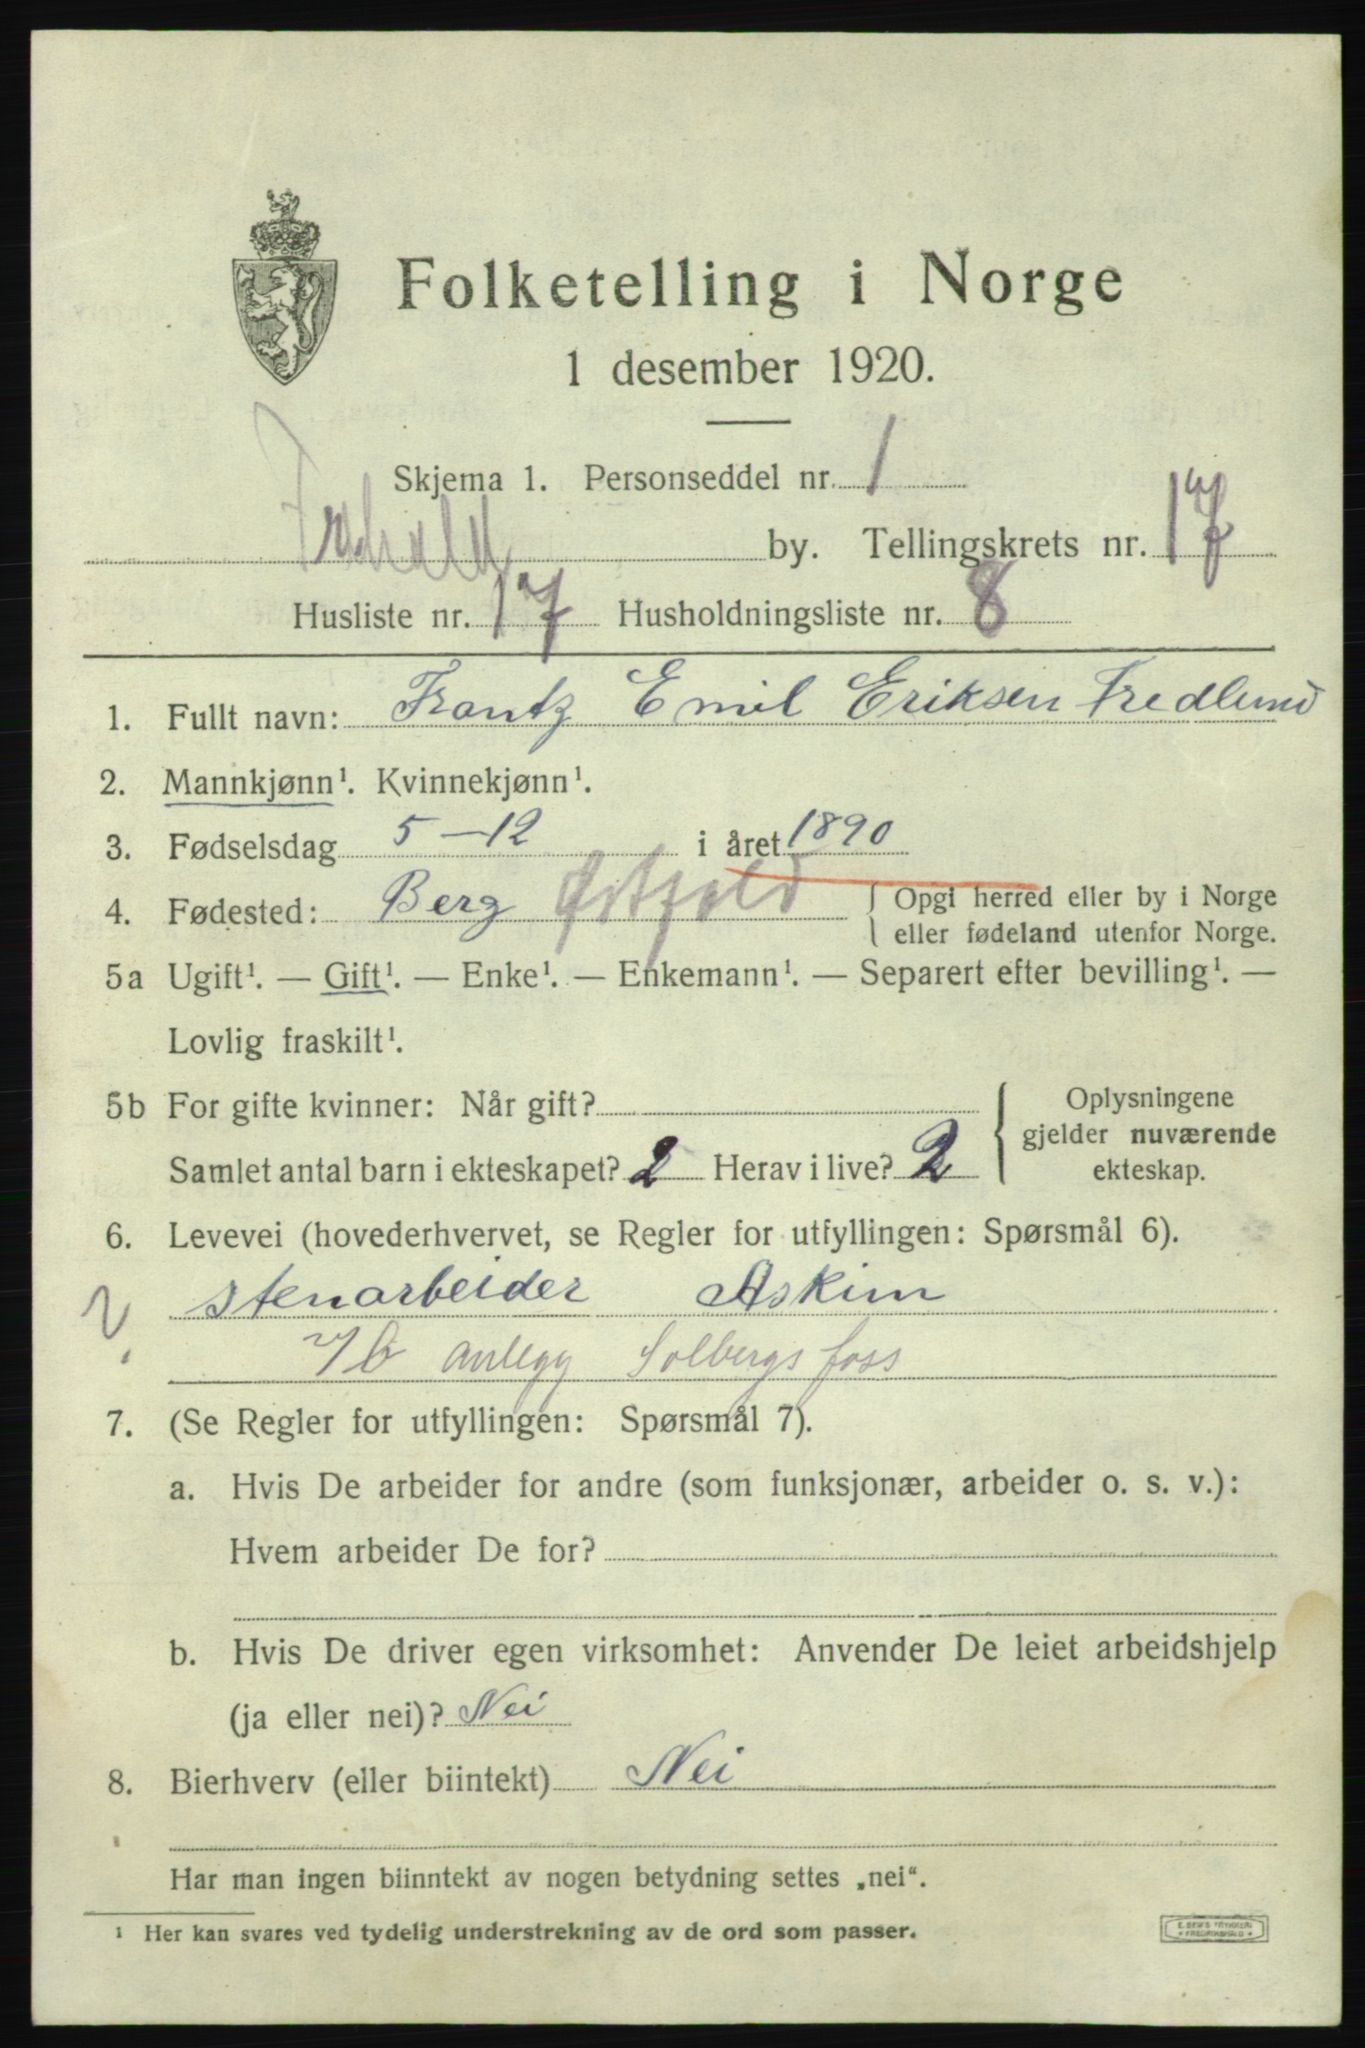 Folketelling i Norge
1 desember 1920.
Skjema 1. Personseddel nr. 1
Frhald by. Tellingskrets nr. 17
Husliste nr. 17 Husholdningsliste nr. 8
1. Fullt navn: Frantz Emil Eriksen Fredlund
2. Mannkjønn¹. Kvinnekjønn¹.
3. Fødselsdag 5-12 i året 1890
4. Fødested: Berg Østfold { Opgi herred eller by i Norge
eller fødeland utenfor Norge.
5a Ugift¹. — Gift¹. — Enke¹. — Enkemann¹. — Separert efter bevilling¹. —
Lovlig fraskilt¹.
5b For gifte kvinner: Når gift? { Oplysningene
gjelder nuværende
Samlet antal barn i ekteskapet? 2 Herav i live? 2 ekteskap.
6. Levevei (hovederhvervet, se Regler for utfyllingen: Spørsmål 6).
stenarbeider Askim
anlegg Solbergsfoss
7. (Se Regler for utfyllingen: Spørsmål 7).
a. Hvis De arbeider for andre (som funksjonær, arbeider o. s. v.):
Hvem arbeider De for?
b. Hvis De driver egen virksomhet: Anvender De leiet arbeidshjelp
(ja eller nei)? Nei
8. Bierhverv (eller biintekt) Nei
Har man ingen biinntekt av nogen betydning settes „nei“.
¹ Her kan svares ved tydelig understrekning av de ord som passer.